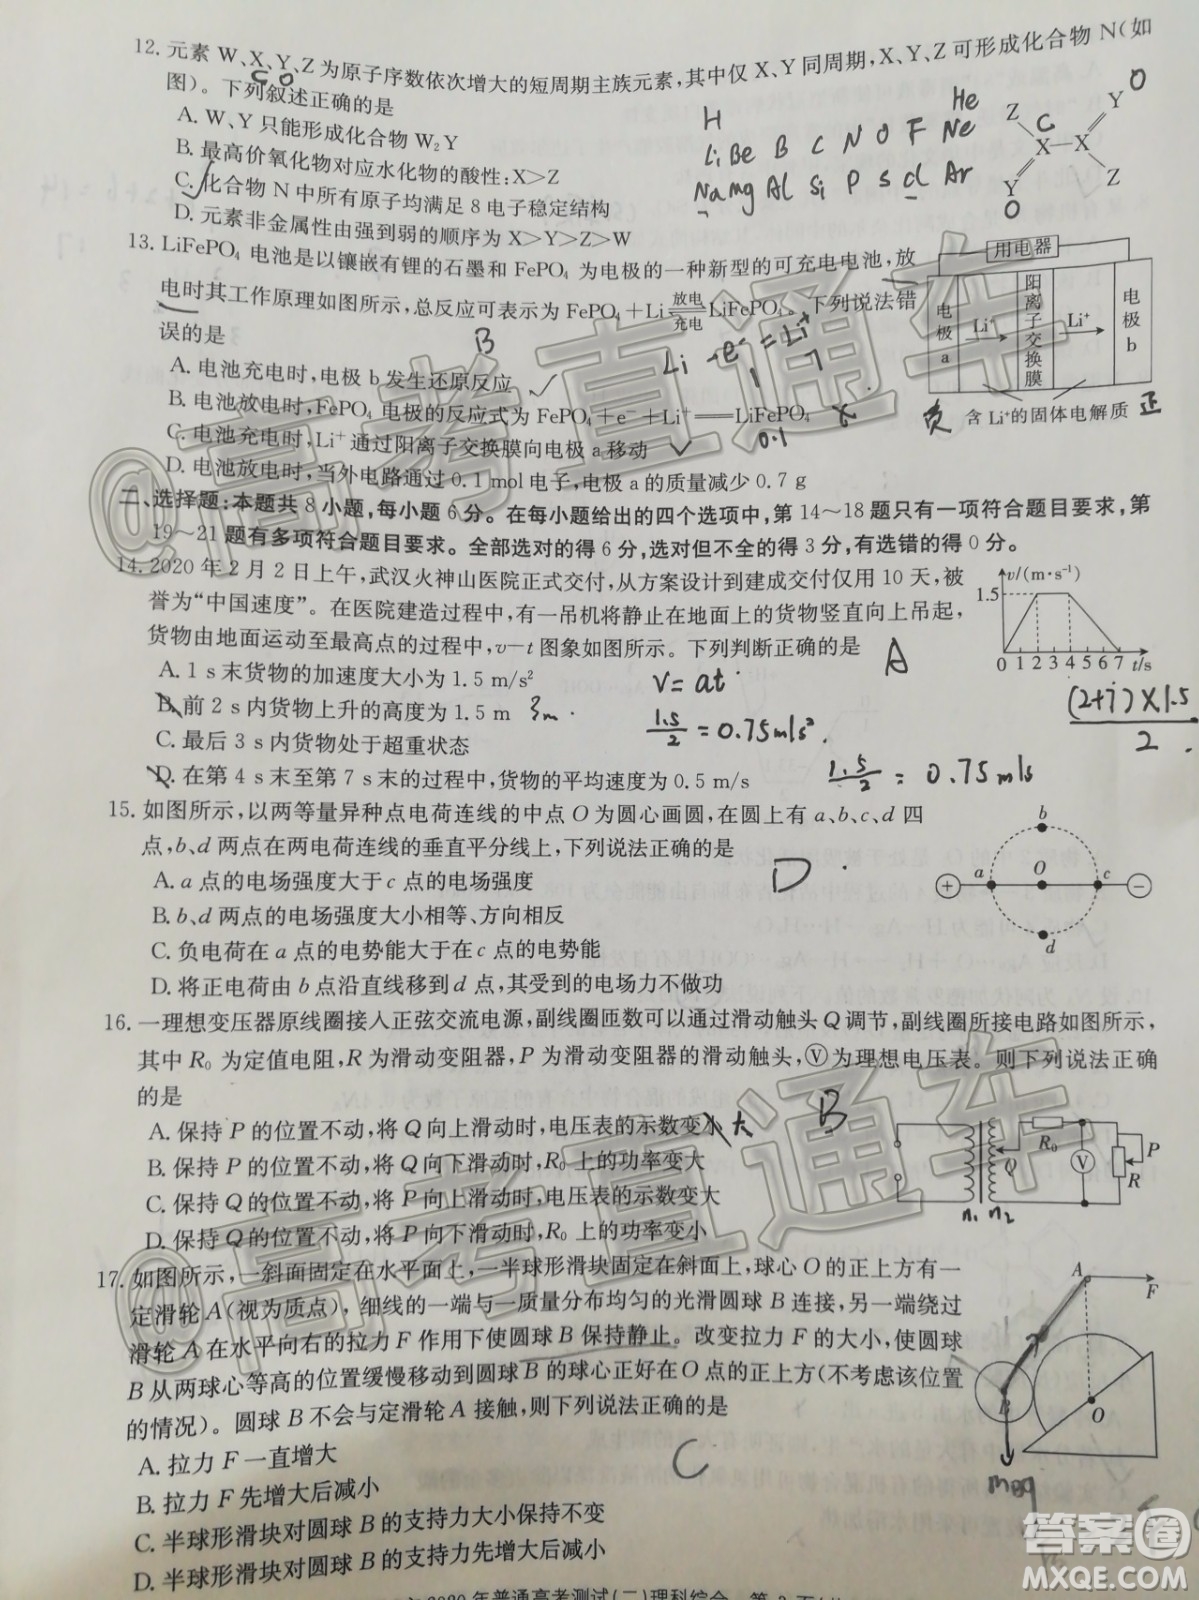 12. 元素 W、X、Y、Z 为原子序数依次增大的短周期主族元素,其中仅 X、Y 同周期,X、Y、Z 可形成化合物 N(如
图)。下列叙述正确的是
C O
A. W、Y 只能形成化合物 W₂Y
B. 最高价氧化物对应水化物的酸性:X>Z
C. 化合物 N 中所有原子均满足 8 电子稳定结构
D. 元素非金属性由强到弱的顺序为 X>Y>Z>W
H He
Li Be B C N O F Ne
Na Mg Al Si P S Cl Ar
Z C Y O
X—X
Y Z
O
13. LiFePO₄ 电池是以镶嵌有锂的石墨和 FePO₄ 为电极的一种新型的可充电电池,放
电时其工作原理如图所示,总反应可表示为 FePO₄+Li 放电 充电 LiFePO₄。下列说法错
误的是
B
Li -e⁻ = Li⁺
1 7
A. 电池充电时,电极 b 发生还原反应
B. 电池放电时,FePO₄ 电极的反应式为 FePO₄+e⁻+Li⁺══LiFePO₄
C. 电池充电时,Li⁺ 通过阳离子交换膜向电极 a 移动
0.1
D. 电池放电时,当外电路通过 0.1 mol 电子,电极 a 的质量减少 0.7 g
用电器
电极a Li⁺ 阳离子交换膜 Li⁺ 电极b
负 含 Li⁺的固体电解质 正
二、选择题:本题共 8 小题,每小题 6 分。在每小题给出的四个选项中,第 14~18 题只有一项符合题目要求,第
19~21 题有多项符合题目要求。全部选对的得 6 分,选对但不全的得 3 分,有选错的得 0 分。
14. 2020 年 2 月 2 日上午,武汉火神山医院正式交付,从方案设计到建成交付仅用 10 天,被
誉为“中国速度”。在医院建造过程中,有一吊机将静止在地面上的货物竖直向上吊起,
货物由地面运动至最高点的过程中,v-t 图象如图所示。下列判断正确的是
A
A. 1 s 末货物的加速度大小为 1.5 m/s²
B. 前 2 s 内货物上升的高度为 1.5 m 3m
C. 最后 3 s 内货物处于超重状态
D. 在第 4 s 末至第 7 s 末的过程中,货物的平均速度为 0.5 m/s
v=at
1.5/2 = 0.75m/s²
1.5/2 = 0.75m/s
v/(m·s⁻¹)
1.5
0 1 2 3 4 5 6 7 t/s
15. 如图所示,以两等量异种点电荷连线的中点 O 为圆心画圆,在圆上有 a、b、c、d 四
点,b、d 两点在两电荷连线的垂直平分线上,下列说法正确的是
D
A. a 点的电场强度大于 c 点的电场强度
B. b、d 两点的电场强度大小相等、方向相反
C. 负电荷在 a 点的电势能大于在 c 点的电势能
D. 将正电荷由 b 点沿直线移到 d 点,其受到的电场力不做功
b
+ a O c −
d
16. 一理想变压器原线圈接入正弦交流电源,副线圈匝数可以通过滑动触头 Q 调节,副线圈所接电路如图所示,
其中 R₀ 为定值电阻,R 为滑动变阻器,P 为滑动变阻器的滑动触头,Ⓥ为理想电压表。则下列说法正确
的是
B
A. 保持 P 的位置不动,将 Q 向上滑动时,电压表的示数变小 大
B. 保持 P 的位置不动,将 Q 向下滑动时,R₀ 上的功率变大
C. 保持 Q 的位置不动,将 P 向上滑动时,电压表的示数变大
D. 保持 Q 的位置不动,将 P 向下滑动时,R₀ 上的功率变小
R₀ P
Q V R
n₁ n₂
17. 如图所示,一斜面固定在水平面上,一半球形滑块固定在斜面上,球心 O 的正上方有一
定滑轮 A(视为质点),细线的一端与一质量分布均匀的光滑圆球 B 连接,另一端绕过
滑轮 A 在水平向右的拉力 F 作用下使圆球 B 保持静止。改变拉力 F 的大小,使圆球
B 从两球心等高的位置缓慢移动到圆球 B 的球心正好在 O 点的正上方(不考虑该位置
的情况)。圆球 B 不会与定滑轮 A 接触,则下列说法正确的是
C
A. 拉力 F 一直增大
B. 拉力 F 先增大后减小
C. 半球形滑块对圆球 B 的支持力大小保持不变
D. 半球形滑块对圆球 B 的支持力先增大后减小
A F
B O
2020 年普通高考测试(二)理科综合
@高考直通车
@高考直通车
答案圈
MXQE.COM